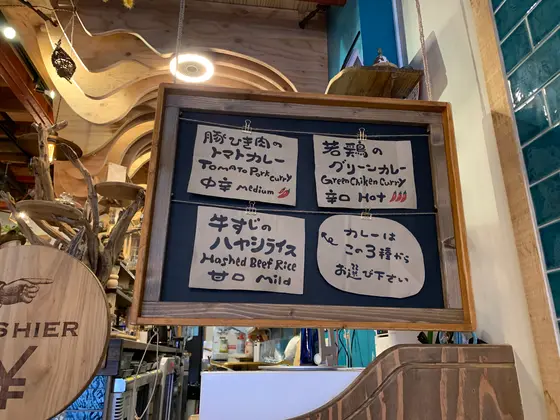 豚ひき肉の
トマトカレー
Tomato Pork Curry
中辛 Medium
若鶏の
グリーンカレー
Green Chiken Curry
辛口 Hot
牛すじの
ハヤシライス
Hashed Beef Rice
甘口 Mild
カレーは
この3種から
お選び下さい
SHIER
¥